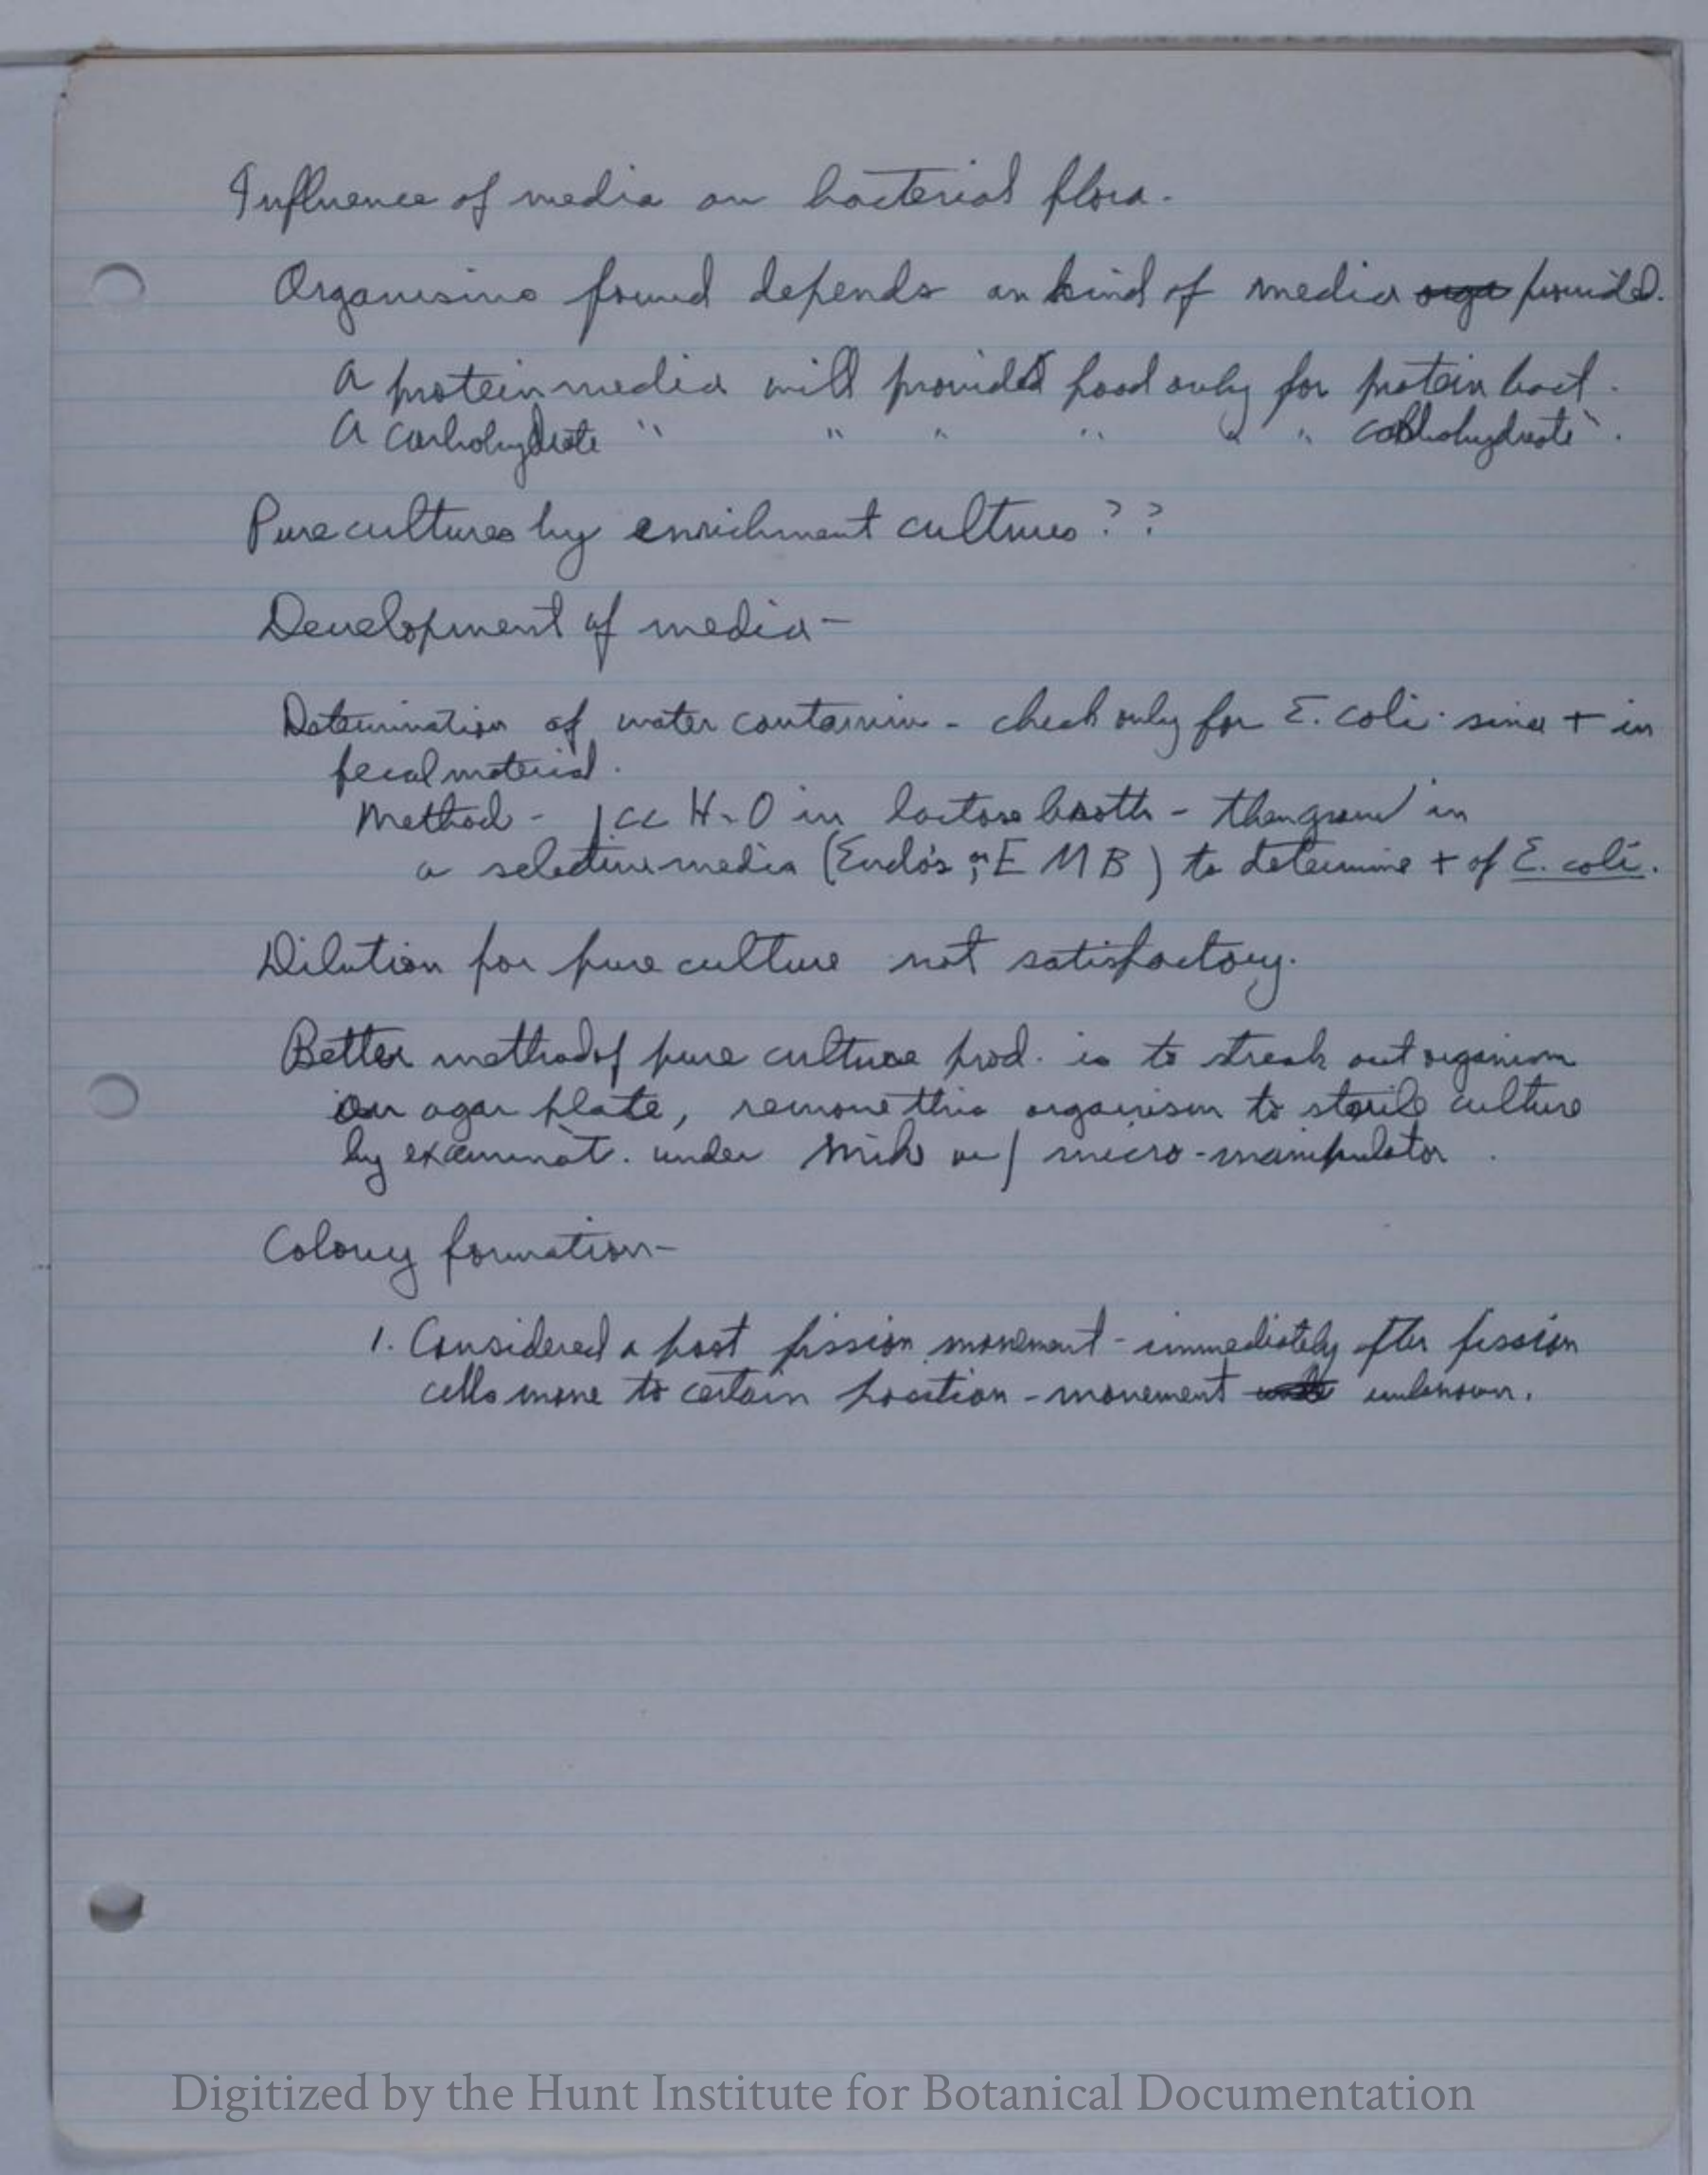 Influence of media on bacterial flora.
Organisms found depends on kind of media provided.
A protein media will provide food only for protein bact.
A carbohydrate " " " " " " carbohydrate " .
Pure cultures by enrichment cultures ? ?
Development of media -
Determination of water contamin - check only for E. coli since + in
fecal material.
Method - 1 cc H2O in lactose broth - then grow in
a selective media (Endo's, or E M B) to determine + of E. coli.
Dilution for pure culture not satisfactory.
Better method of pure culture prod. is to streak out organism
on agar plate, remove this organism to sterile culture
by examinat. under mik w/ micro-manipulator.
Colony formation -
1. Considered a post fission movement - immediately fter fission
cells move to certain position - movement unknown.
Digitized by the Hunt Institute for Botanical Documentation